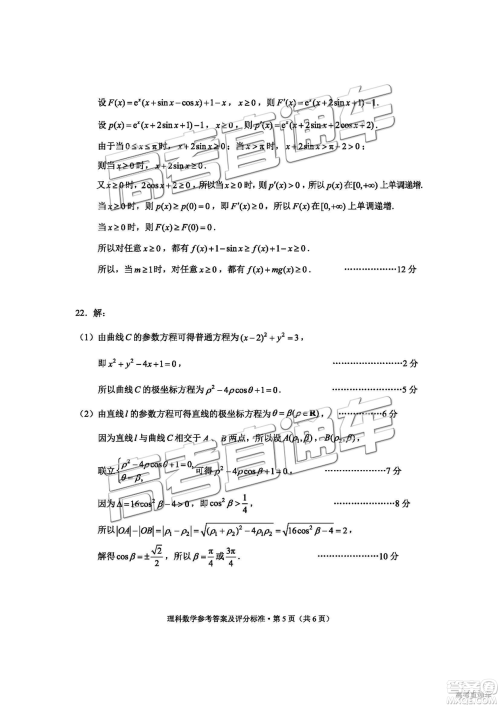 设 F(x)=eˣ(x+sin x−cos x)+1−x，x≥0，则 F′(x)=eˣ(x+2sin x+1)−1.
设 p(x)=eˣ(x+2sin x+1)−1，x≥0，则 p′(x)=eˣ(x+2sin x+2cos x+2).
由于当 0≤x≤π 时，x+2sin x≥0；当 x>π 时，x+2sin x>π−2>0；
则当 x≥0 时，x+2sin x≥0.
又 x≥0 时，2cos x+2≥0，所以当 x≥0 时，则 p′(x)>0，所以 p(x) 在 [0,+∞) 上单调递增.
当 x≥0 时，则 p(x)≥p(0)=0，所以 F(x) 在 [0,+∞) 上单调递增.
当 x≥0 时，则 F(x)≥F(0)=0.
所以对任意 x≥0，都有 f(x)+1−sin x≥f(x)+1−x≥0.
所以，当 m≥1 时，对任意 x≥0，都有 f(x)+mg(x)≥0. …………………12 分
22．解：
（1）由曲线 C 的参数方程可得普通方程为 (x−2)²+y²=3，
即 x²+y²−4x+1=0， …………………………2 分
所以曲线 C 的极坐标方程为 ρ²−4ρcosθ+1=0. …………………………5 分
（2）由直线 l 的参数方程可得直线的极坐标方程为 θ=β(ρ∈R)， ……………6 分
因为直线 l 与曲线 C 相交于 A、B 两点，所以设 A(ρ₁,β)，B(ρ₂,β)，
联立 { ρ²−4ρcosθ+1=0, θ=β, 可得 ρ²−4ρcosβ+1=0， …………………7 分
因为 Δ=16cos²β−4>0，即 cos²β>1/4， …………………………8 分
所以 |OA|−|OB|=|ρ₁−ρ₂|=√((ρ₁+ρ₂)²−4ρ₁ρ₂)=√(16cos²β−4)=2，
解得 cosβ=±√2/2，所以 β=π/4 或 3π/4. …………………10 分
理科数学参考答案及评分标准·第 5 页（共 6 页）
高考直通车